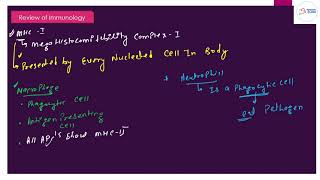 Review of Immunology
MHC - I
Mega Histocompatibility Complex - I
Presented by Every Nucleated Cell In Body
Macrophage
- Phagocytic Cell
- Antigen Presenting
Cell
- All APC's Show MHC-II
Neutrophil
Is a Phagocytic cell
eat Pathogen